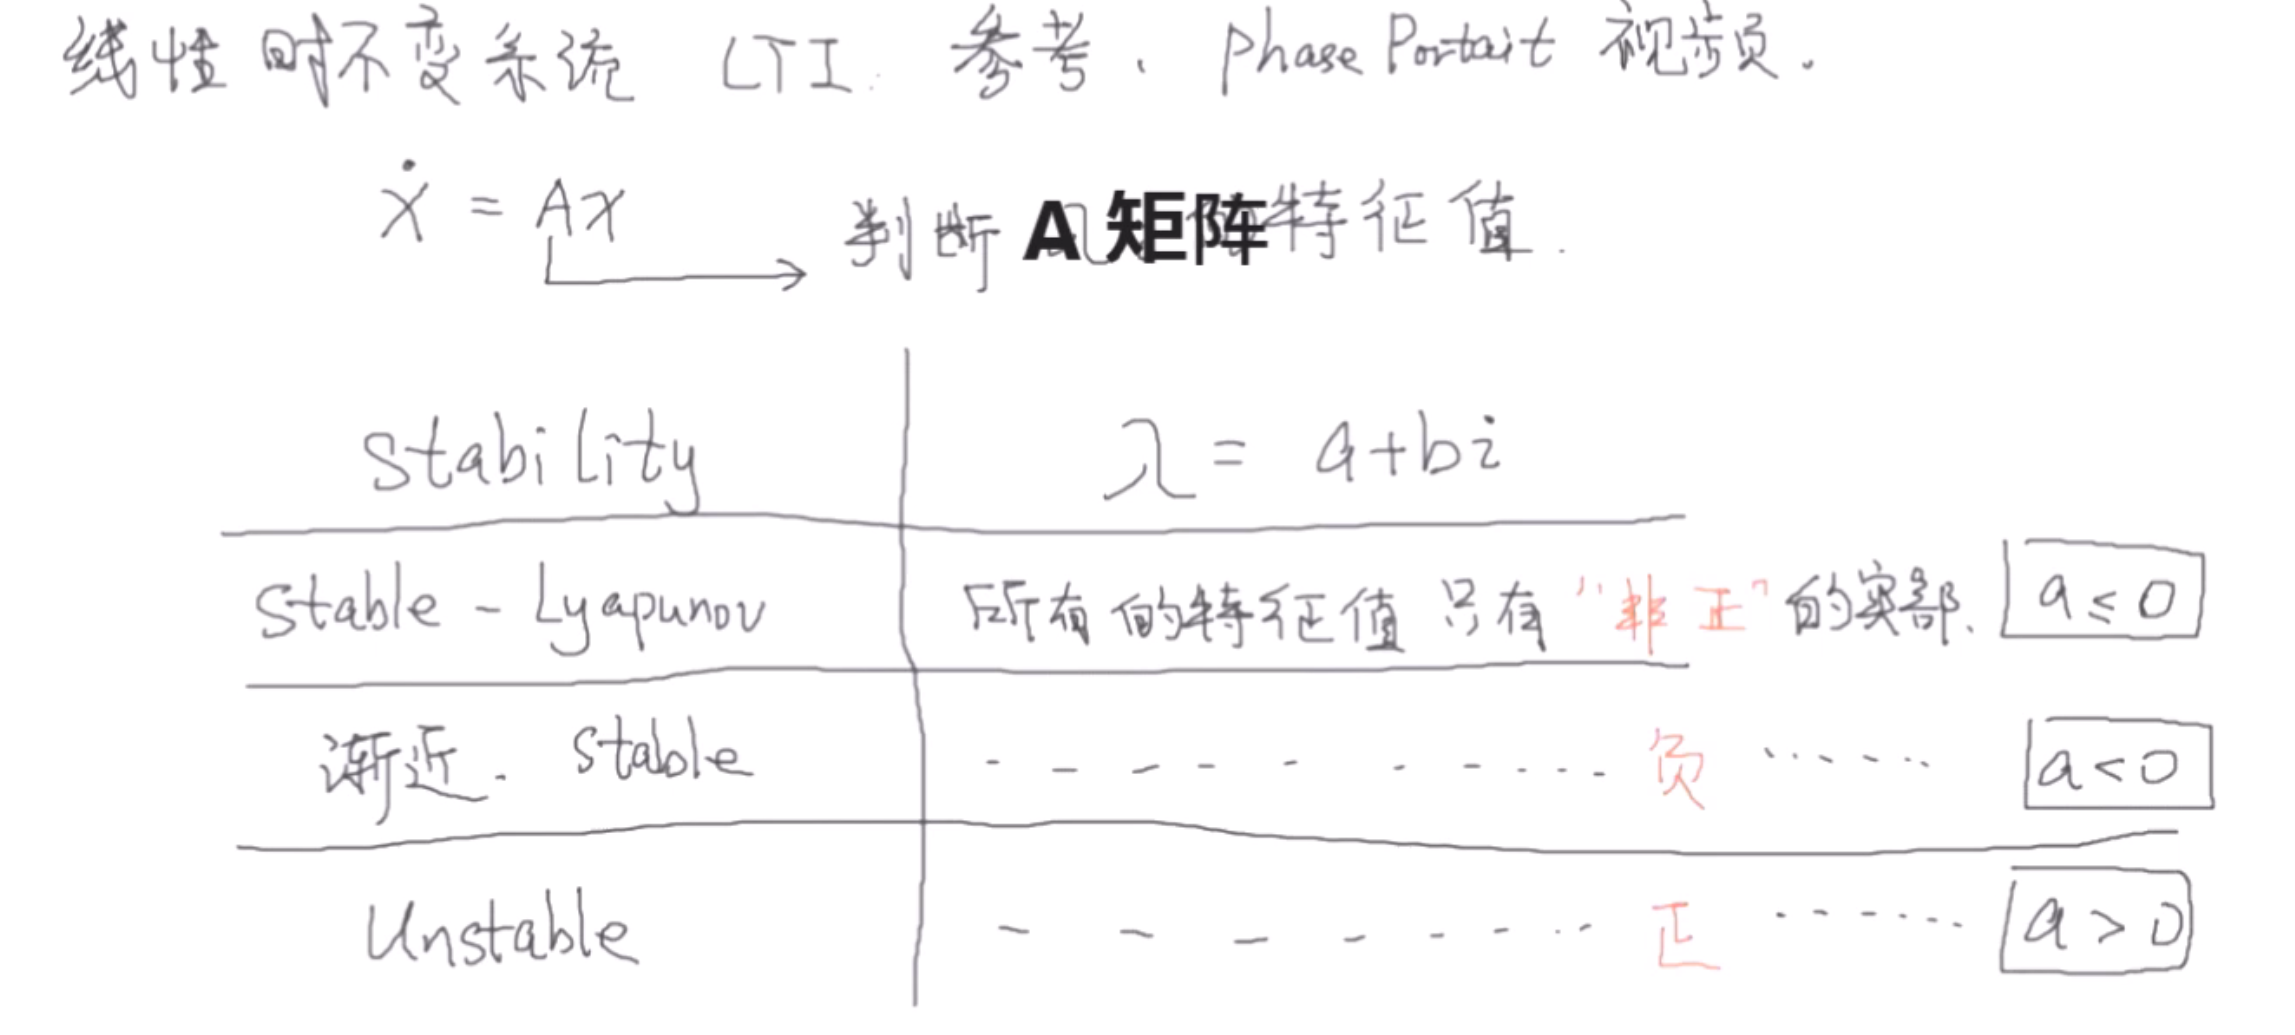 线性时不变系统 LTI. 参考、Phase Portait 视频.
ẋ = Ax
判断 A 矩阵 特征值.
Stability λ = a+bi
Stable - Lyapunov 所有的特征值只有 "非正" 的实部、 a ≤ 0
渐近. stable - - - - - - - - - - 负 ...... a < 0
Unstable - - - - - - - - 正 ...... a > 0